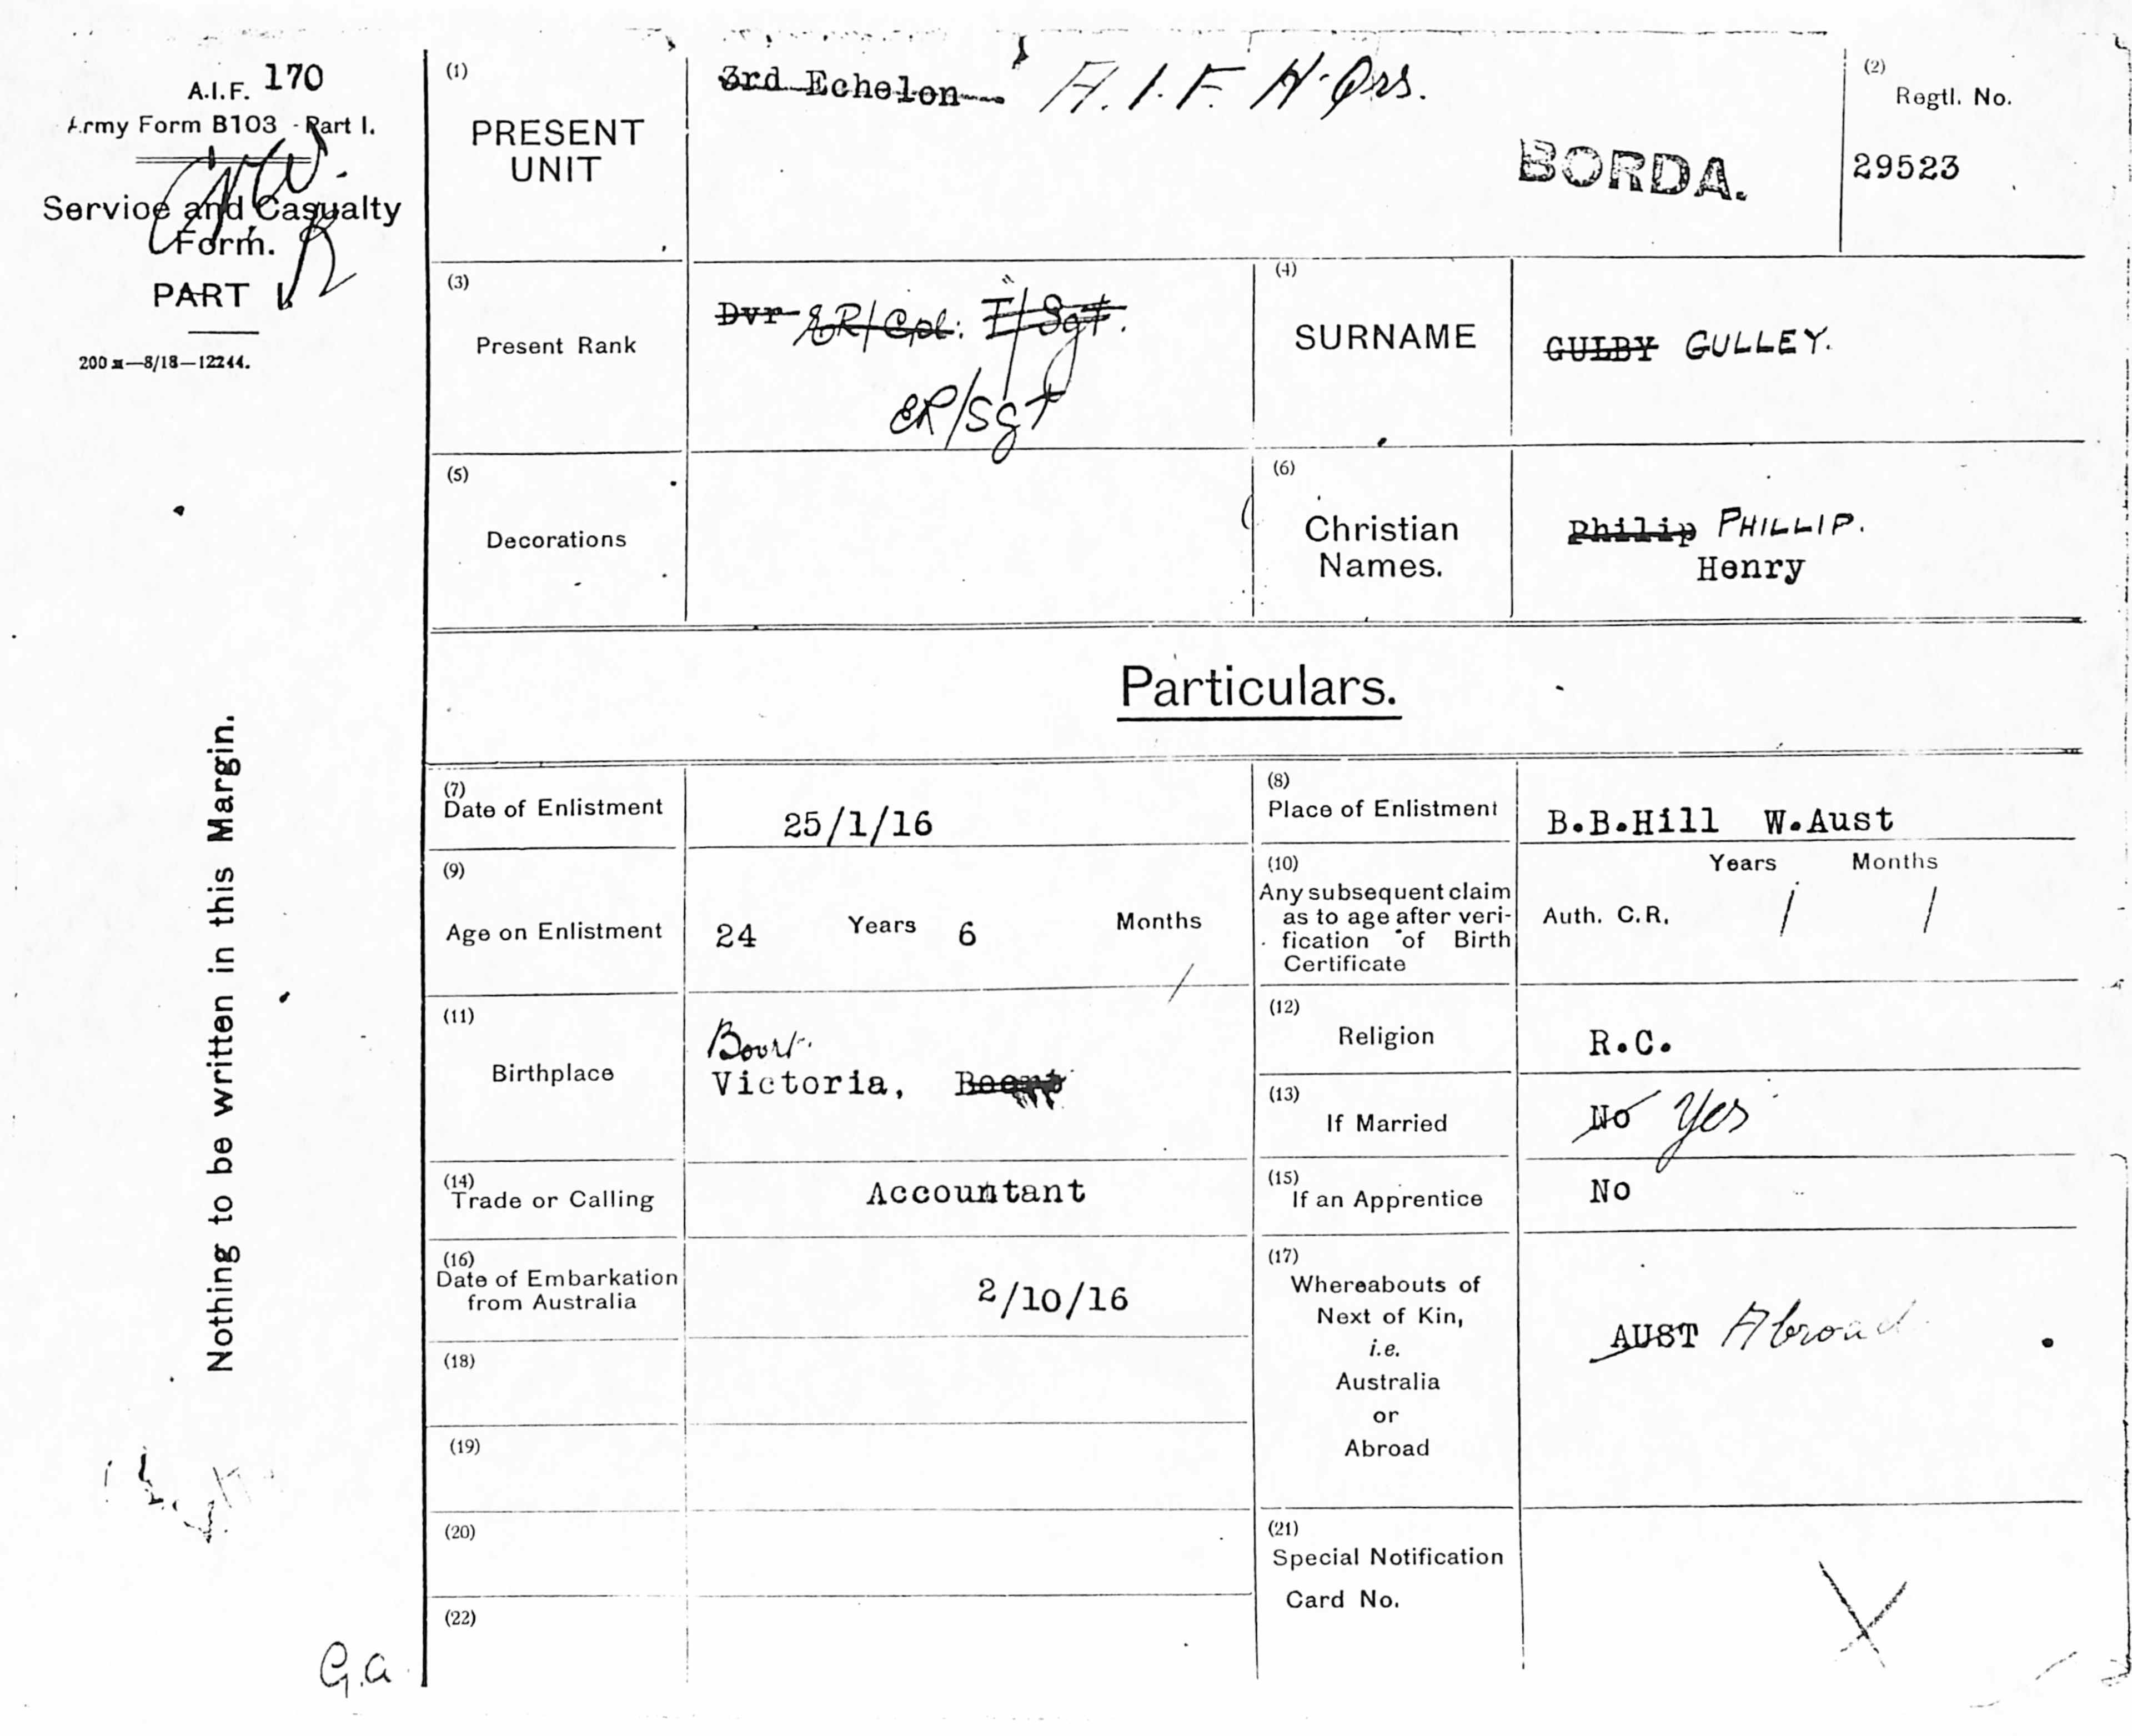 A.I.F. 170
Army Form B103 - Part I.
Service and Casualty
Form.
PART I.
200 M—8/18—12244.
Nothing to be written in this Margin.
G.a
(1)
PRESENT
UNIT
3rd Echelon A.I.F. H.Qrs.
BORDA.
(2)
Regtl. No.
29523
(3)
Present Rank
Dvr ER/Cpl. T/Sgt.
ER/Sgt
(4)
SURNAME
GULBY GULLEY.
(5)
Decorations
(6)
Christian
Names.
Philip PHILLIP.
Henry
Particulars.
(7)
Date of Enlistment
25/1/16
(8)
Place of Enlistment
B.B.Hill W.Aust
(9)
Age on Enlistment
24 Years 6 Months
(10)
Any subsequent claim
as to age after veri-
fication of Birth
Certificate
Years Months
Auth. C.R.
(11)
Birthplace
Victoria,
(12)
Religion
R.C.
(13)
If Married
No Yes
(14)
Trade or Calling
Accountant
(15)
If an Apprentice
No
(16)
Date of Embarkation
from Australia
2/10/16
(17)
Whereabouts of
Next of Kin,
i.e.
Australia
or
Abroad
AUST Abroad
(18)
(19)
(20)
(21)
Special Notification
Card No.
(22)